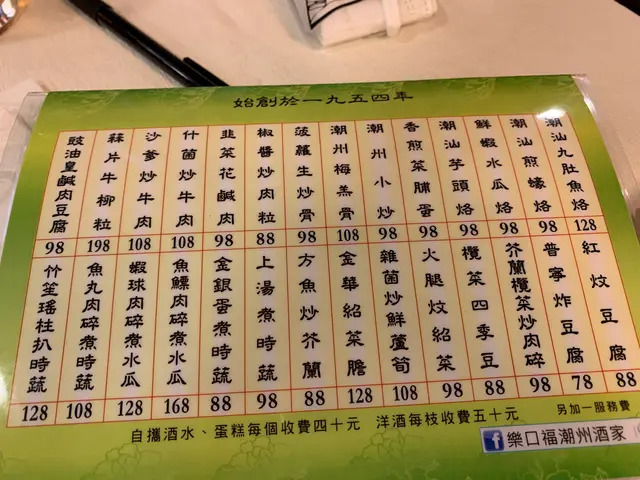 始創於一九五四年
潮汕九肚魚烙
128
潮汕煎蠔烙
98
鮮蝦水瓜烙
98
潮汕芋頭烙
98
香煎菜脯蛋
98
潮州小炒
98
潮州梅羔骨
108
菠蘿生炒骨
98
椒醬炒肉粒
88
韭菜花鹹肉
98
什菌炒牛肉
108
沙爹炒牛肉
108
蒜片牛柳粒
198
豉油皇鹹肉豆腐
98
紅炆豆腐
88
普寧炸豆腐
78
芥蘭欖菜炒肉碎
98
欖菜四季豆
88
火腿炆紹菜
98
雜菌炒鮮蘆筍
108
金華紹菜膽
128
方魚炒芥蘭
88
上湯煮時蔬
98
金銀蛋煮時蔬
88
魚鰾肉碎煮水瓜
168
蝦球肉碎煮水瓜
128
魚丸肉碎煮時蔬
108
竹笙瑤柱扒時蔬
128
自攜酒水、蛋糕每個收費四十元 洋酒每枝收費五十元
另加一服務費
樂口福潮州酒家